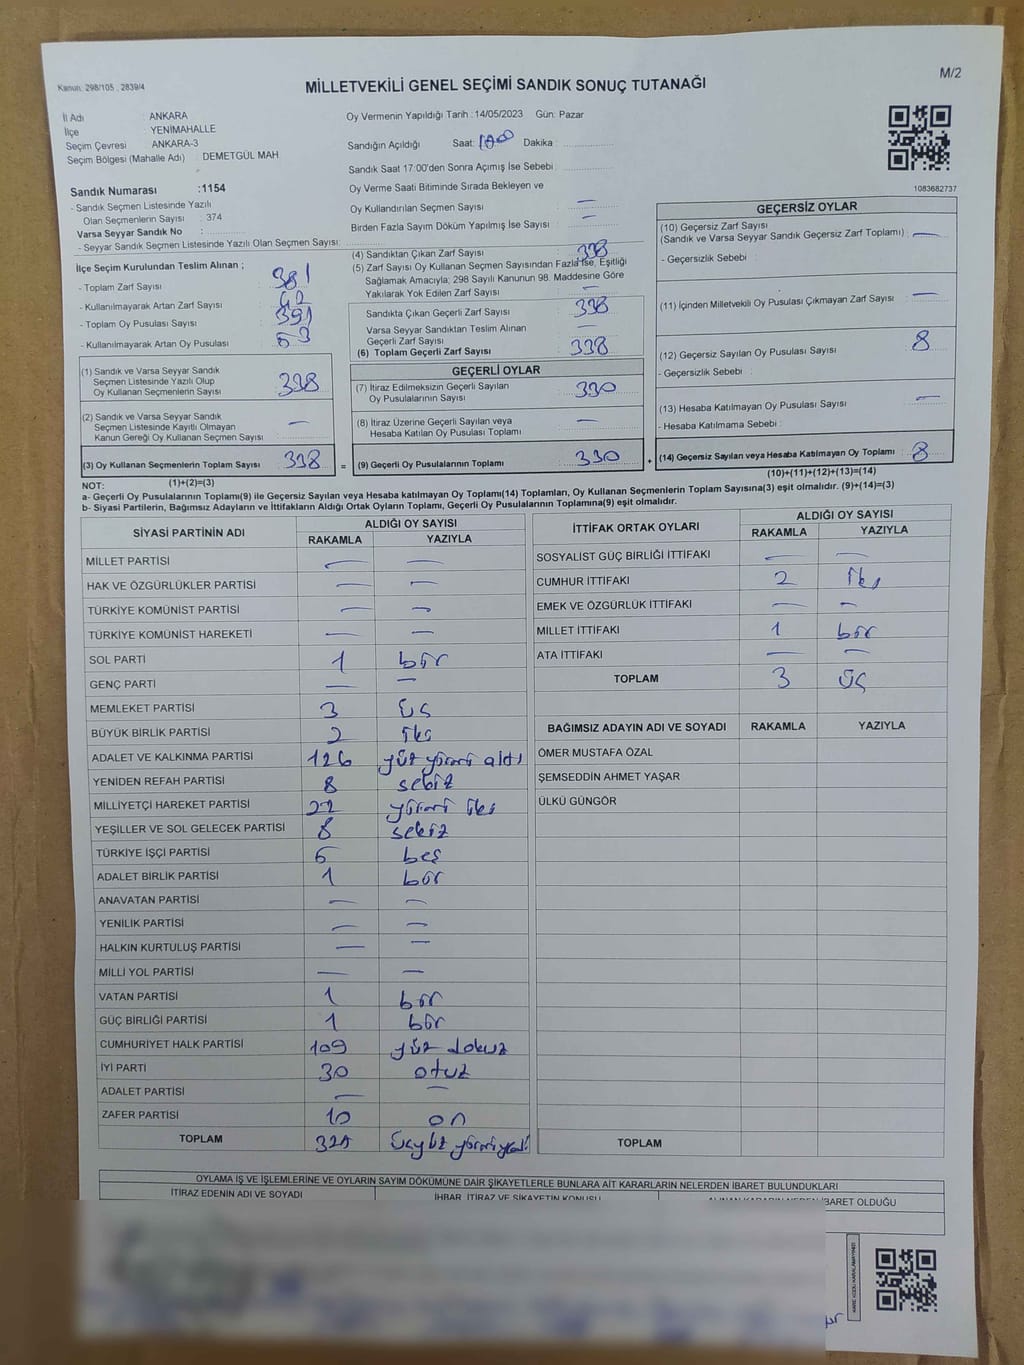 Kanun: 298/105 , 2839/4
MİLLETVEKİLİ GENEL SEÇİMİ SANDIK SONUÇ TUTANAĞI
M/2
İl Adı : ANKARA
İlçe : YENİMAHALLE
Seçim Çevresi : ANKARA-3
Seçim Bölgesi (Mahalle Adı) : DEMETGÜL MAH
Sandık Numarası :1154
- Sandık Seçmen Listesinde Yazılı
Olan Seçmenlerin Sayısı : 374
Varsa Seyyar Sandık No :
- Seyyar Sandık Seçmen Listesinde Yazılı Olan Seçmen Sayısı:
Oy Vermenin Yapıldığı Tarih :14/05/2023 Gün: Pazar
Sandığın Açıldığı Saat: Dakika :
Sandık Saat 17:00'den Sonra Açımış İse Sebebi :
Oy Verme Saati Bitiminde Sırada Bekleyen ve
Oy Kullandırılan Seçmen Sayısı : —
Birden Fazla Sayım Döküm Yapılmış İse Sayısı : —
1083682737
İlçe Seçim Kurulundan Teslim Alınan ;
- Toplam Zarf Sayısı : 381
- Kullanılmayarak Artan Zarf Sayısı : 42
- Toplam Oy Pusulası Sayısı : 391
- Kullanılmayarak Artan Oy Pusulası : 53
(1) Sandık ve Varsa Seyyar Sandık
Seçmen Listesinde Yazılı Olup
Oy Kullanan Seçmenlerin Sayısı : 338
(2) Sandık ve Varsa Seyyar Sandık
Seçmen Listesinde Kayıtlı Olmayan
Kanun Gereği Oy Kullanan Seçmen Sayısı : —
(3) Oy Kullanan Seçmenlerin Toplam Sayısı : 338
(1)+(2)=(3)
(4) Sandıktan Çıkan Zarf Sayısı : 338
(5) Zarf Sayısı Oy Kullanan Seçmen Sayısından Fazla İse, Eşitliği
Sağlamak Amacıyla; 298 Sayılı Kanunun 98. Maddesine Göre
Yakılarak Yok Edilen Zarf Sayısı : —
Sandıkta Çıkan Geçerli Zarf Sayısı : 338
Varsa Seyyar Sandıktan Teslim Alınan
Geçerli Zarf Sayısı : —
(6) Toplam Geçerli Zarf Sayısı : 338
GEÇERLİ OYLAR
(7) İtiraz Edilmeksizin Geçerli Sayılan
Oy Pusulalarının Sayısı : 330
(8) İtiraz Üzerine Geçerli Sayılan veya
Hesaba Katılan Oy Pusulası Toplamı : —
= (9) Geçerli Oy Pusulalarının Toplamı : 330 +
GEÇERSİZ OYLAR
(10) Geçersiz Zarf Sayısı
(Sandık ve Varsa Seyyar Sandık Geçersiz Zarf Toplamı) : —
- Geçersizlik Sebebi :
(11) İçinden Milletvekili Oy Pusulası Çıkmayan Zarf Sayısı : —
(12) Geçersiz Sayılan Oy Pusulası Sayısı : 8
- Geçersizlik Sebebi :
(13) Hesaba Katılmayan Oy Pusulası Sayısı : —
- Hesaba Katılmama Sebebi :
(14) Geçersiz Sayılan veya Hesaba Katılmayan Oy Toplamı : 8
(10)+(11)+(12)+(13)=(14)
NOT:
a- Geçerli Oy Pusulalarının Toplamı(9) ile Geçersiz Sayılan veya Hesaba katılmayan Oy Toplamı(14) Toplamları, Oy Kullanan Seçmenlerin Toplam Sayısına(3) eşit olmalıdır. (9)+(14)=(3)
b- Siyasi Partilerin, Bağımsız Adayların ve İttifakların Aldığı Ortak Oyların Toplamı, Geçerli Oy Pusulalarının Toplamına(9) eşit olmalıdır.
SİYASİ PARTİNİN ADI ALDIĞI OY SAYISI
RAKAMLA YAZIYLA
MİLLET PARTİSİ — —
HAK VE ÖZGÜRLÜKLER PARTİSİ — —
TÜRKİYE KOMÜNİST PARTİSİ — —
TÜRKİYE KOMÜNİST HAREKETİ — —
SOL PARTİ 1 bir
GENÇ PARTİ — —
MEMLEKET PARTİSİ 3 üç
BÜYÜK BİRLİK PARTİSİ 2 iki
ADALET VE KALKINMA PARTİSİ 126 yüz yirmi altı
YENİDEN REFAH PARTİSİ 8 sekiz
MİLLİYETÇİ HAREKET PARTİSİ 22 yirmi iki
YEŞİLLER VE SOL GELECEK PARTİSİ 8 sekiz
TÜRKİYE İŞÇİ PARTİSİ 5 beş
ADALET BİRLİK PARTİSİ 1 bir
ANAVATAN PARTİSİ — —
YENİLİK PARTİSİ — —
HALKIN KURTULUŞ PARTİSİ — —
MİLLİ YOL PARTİSİ — —
VATAN PARTİSİ 1 bir
GÜÇ BİRLİĞİ PARTİSİ 1 bir
CUMHURİYET HALK PARTİSİ 109 yüz dokuz
İYİ PARTİ 30 otuz
ADALET PARTİSİ — —
ZAFER PARTİSİ 10 on
TOPLAM 327 üçyüz yirmiyedi
İTTİFAK ORTAK OYLARI ALDIĞI OY SAYISI
RAKAMLA YAZIYLA
SOSYALİST GÜÇ BİRLİĞİ İTTİFAKI — —
CUMHUR İTTİFAKI 2 iki
EMEK VE ÖZGÜRLÜK İTTİFAKI — —
MİLLET İTTİFAKI 1 bir
ATA İTTİFAKI — —
TOPLAM 3 üç
BAĞIMSIZ ADAYIN ADI VE SOYADI RAKAMLA YAZIYLA
ÖMER MUSTAFA ÖZAL
ŞEMSEDDİN AHMET YAŞAR
ÜLKÜ GÜNGÖR
TOPLAM
OYLAMA İŞ VE İŞLEMLERİNE VE OYLARIN SAYIM DÖKÜMÜNE DAİR ŞİKAYETLERLE BUNLARA AİT KARARLARIN NELERDEN İBARET BULUNDUKLARI
İTİRAZ EDENİN ADI VE SOYADI İHBAR, İTİRAZ VE ŞİKAYETİN KONUSU ALINAN KARARIN NEDEN İBARET OLDUĞU